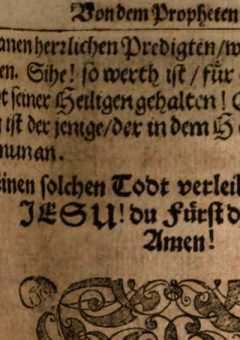 Von dem Propheten
anen herrlichen Predigten/w
en. Sihe! so werth ist/für
t seiner Heiligen gehalten!
ist der jenige/der in dem H
nun an.
inen solchen Todt verleih
JESU! du Fürst d
Amen!